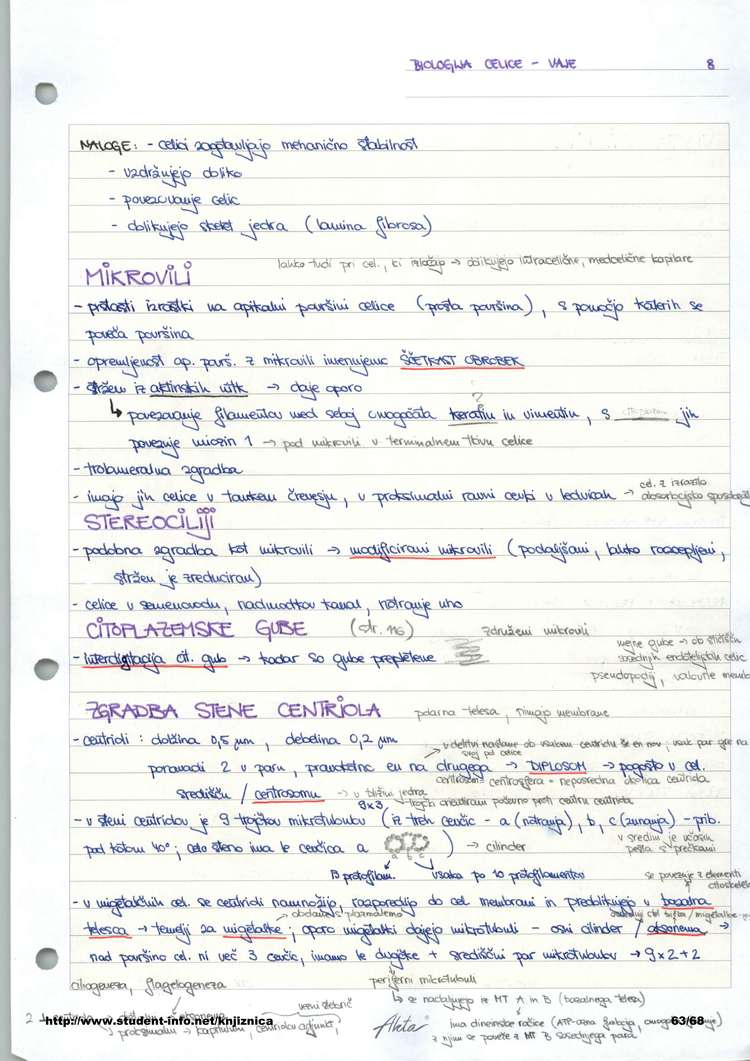 BIOLOGIJA CELICE - VAJE 8
NALOGE: - celici zagotavljajo mehanično stabilnost
- vzdržujejo obliko
- povezovanje celic
- oblikujejo skelet jedra (lamina fibrosa)
lahko tudi pri cel., ki izločajo → oblikujejo intracelične, medcelične kapilare
MIKROVILI
- prstasti izrastki na apikalni površini celice (prosta površina), s pomočjo katerih se
poveča površina
- opremljenost ap. površ. z mikrovili imenujemo ŠČETKAST OBROBEK
- stržen iz aktinskih vitk → daje oporo
?
↳ povezovanje filamentov med seboj omogočata keratin in vimentin, s jih
povezuje miozin 1 → pod mikrovili v terminalnem tkivu celice
- trolamelarna zgradba
- imajo jih celice v tankem črevesju, v proksimalni ravni cevki v ledvicah → cel. z izrazito
absorbcijsko
STEREOCILIJI
- podobna zgradba kot mikrovili → modificirani mikrovili (podaljšani, lahko razcepljeni,
stržen je zreduciran)
- celice v semenovodu, nadmodkov kanal, notranje uho
CITOPLAZEMSKE GUBE (str. 116) združeni mikrovili
- interdigitacija cit. gub → kadar so gube prepletene
mejne gube → ob stičiščih
sosednjih endotelijskih celic
pseudopodij, valovite memb
ZGRADBA STENE CENTRIOLA polarna telesa, nimajo membrane
- centrioli: dolžina 0,5 μm, debelina 0,2 μm
v delitvi nastane ob vsakem centriolu še en nov, vsak par gre na
svoj pol celice
ponavadi 2 v paru, pravokotno en na drugega → DIPLOSOM → pogosto v cel.
centrosom = centrosfera = neposredna okolica centriola
središču / centrosomu → v bližini jedra
9x3 trojčki orientirani poševno proti centru centriola
- v steni centriolov je 9 trojčkov mikrotubulov (iz treh cevčic - a (notranja), b, c (zunanja) - prib.
pod kotom 40°; celo steno ima le cevčica a ) → cilinder
a b c
v sredini je včasih
pešta s prečkami
13 protofilam. vsaka po 10 protofilamentov
se povezuje z elementi
citoskeleta
- v migetalčnih cel. se centrioli namnožijo, razporedijo do cel. membrani in preoblikujejo v bazalna
obdana s plazmalemo
telesca → temelji za migetalke; oporo migetalki dajejo mikrotubuli - osni cilinder / aksonema →
nad površino cel. ni več 3 cevčic, imamo le dvojčke + središčni par mikrotubulov → 9x2+2
ciliogeneza, flagelogeneza
periferni mikrotubuli
↳ se nadaljujejo iz MT A in B (bazalnega telesa)
ima dineinske ročice (ATP-azna
z njim se poveže z MT B sosednjega para
Ahta
http://www.student-info.net/knjiznica 63/68